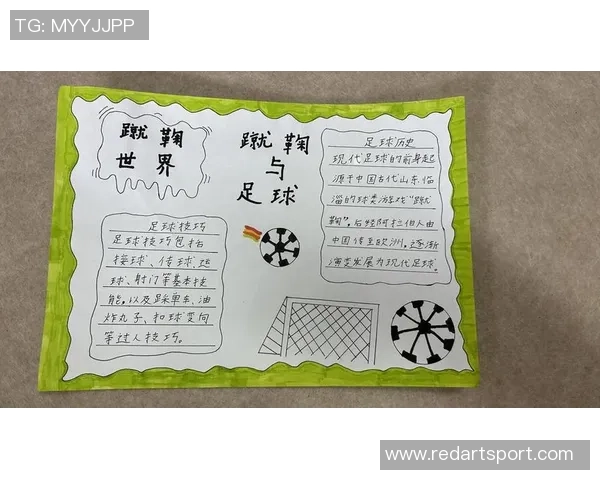 TG: MYYJJPP
蹴鞠
世界
蹴鞠
与
足球
足球历史
现代足球的前身起
源于中国古代山东临
淄的球类游戏“蹴
鞠”，后经阿拉伯人由
中国传至欧洲，逐渐
演变发展为现代足球。
足球技巧
足球技巧包括
接球、传球、运
球、射门等基本技
能，以及踩单车、油
炸丸子、扣球变向
等过人技巧。
www.redartsport.com